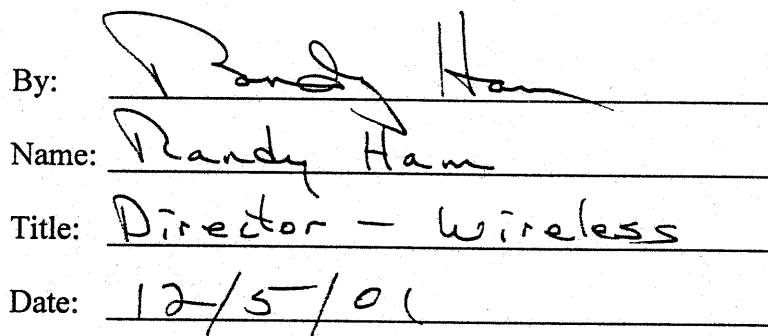 By: Randy Ham
Name: Randy Ham
Title: Director - Wireless
Date: 12/5/01